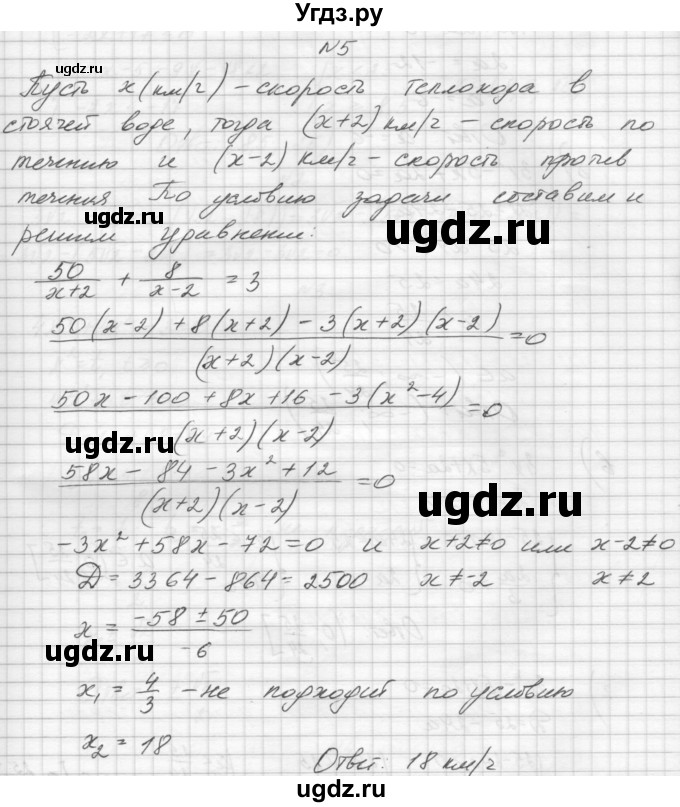 Угдз.ру
N5
Пусть x (км/ч) – скорость теплохода в
стоячей воде, тогда (x+2) км/ч – скорость по
течению и (x-2) км/ч – скорость против
течения По условию задачи составим и
решим уравнение:
50/(x+2) + 8/(x-2) = 3
(50(x-2) + 8(x+2) - 3(x+2)(x-2))/((x+2)(x-2)) = 0
(50x - 100 + 8x + 16 - 3(x² - 4))/((x+2)(x-2)) = 0
(58x - 84 - 3x² + 12)/((x+2)(x-2)) = 0
-3x² + 58x - 72 = 0 и x+2≠0 или x-2≠0
Д = 3364 - 864 = 2500 x ≠ -2 x ≠ 2
x = (-58 ± 50)/-6
x₁ = 4/3 – не подходит по условию
x₂ = 18
Ответ: 18 км/ч
ugdz.ru
ugdz.ru
ugdz.ru
ugdz.ru
ugdz.ru
ugdz.ru
ugdz.ru
ugdz.ru
ugdz.ru